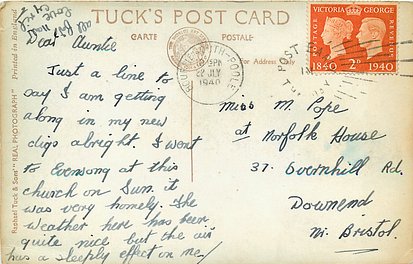 TUCK'S POST CARD
CARTE POSTALE
For Address Only
Printed in England
Raphael Tuck & Sons' "REAL PHOTOGRAPH"
POSTAGE
VICTORIA GEORGE
REVENUE
1840 2D 1940
BOURNEMOUTH-POOLE
PM
22 JLY
1940
POST
IN
Dear Auntie
Just a line to
say I am getting
along in my new
digs alright. I went
to Evensong at this
church on Sun. it
was very homely. The
weather here has been
quite nice but the air
has a sleeply effect on me/
all for now
love
Miss M. Pope
at Norfolk House
37. Overnhill Rd.
Downend
Nr. Bristol.